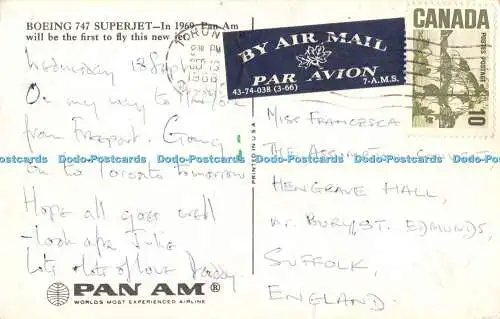 BOEING 747 SUPERJET—In 1969, Pan Am
will be the first to fly this new jet.
Wednesday 18 Sept
On my way to New York
from Freeport. Going
on to Toronto tomorrow
Hope all goes well
- look after Julie
Lots & lots of love Daddy
PAN AM®
WORLD'S MOST EXPERIENCED AIRLINE
PRINTED IN U.S.A.
PM
BY AIR MAIL
PAR AVION
43-74-038 (3-66)
7-A.M.S.
CANADA
POSTES POSTAGE
10
MISS FRANCESCA
THE ASSUMPTION
HENGRAVE HALL,
NR. BURY ST. EDMUNDS,
SUFFOLK,
ENGLAND.
Dodo-Postcards Dodo-Postcards Dodo-Postcards Dodo-Postcards Dodo-Postcards